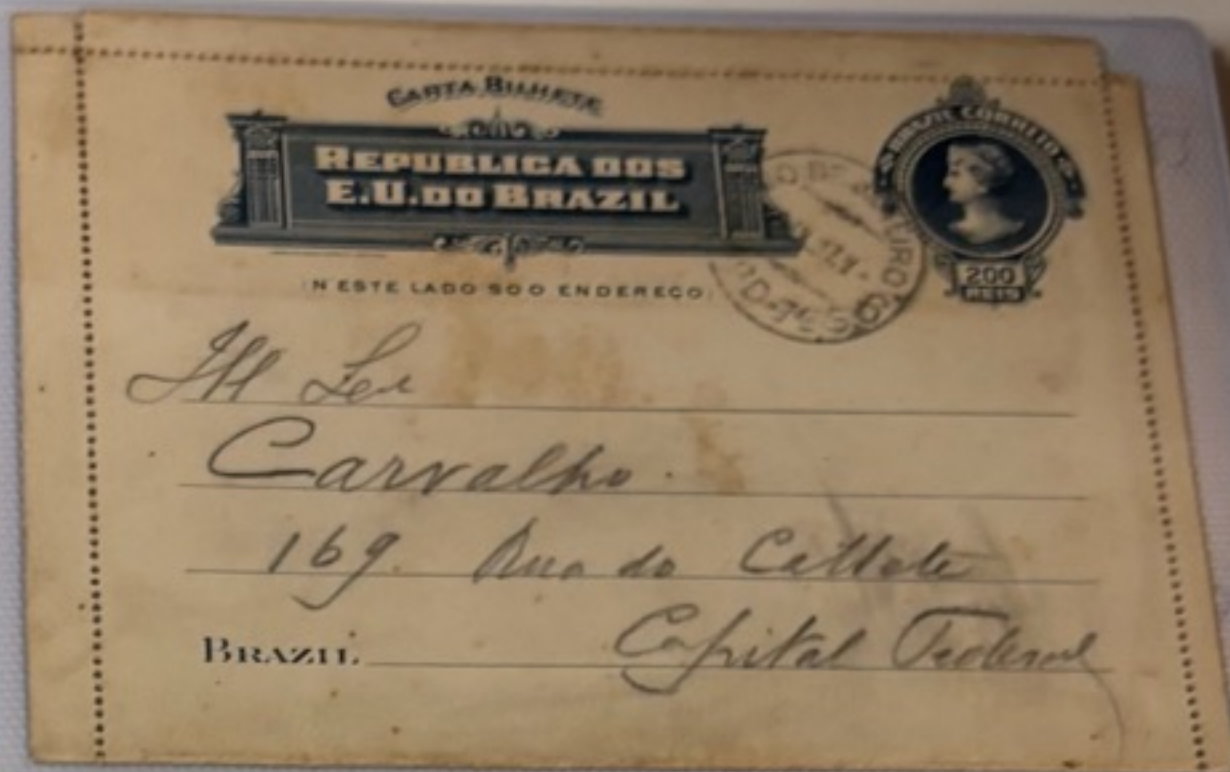 CARTA BILHETE
REPUBLICA DOS
E.U. DO BRAZIL
BRAZIL CORREIO
200
REIS
N'ESTE LADO SÓ O ENDEREÇO
Ill
Carvalho.
169. Rua do Cattete
BRAZIL Capital Federal